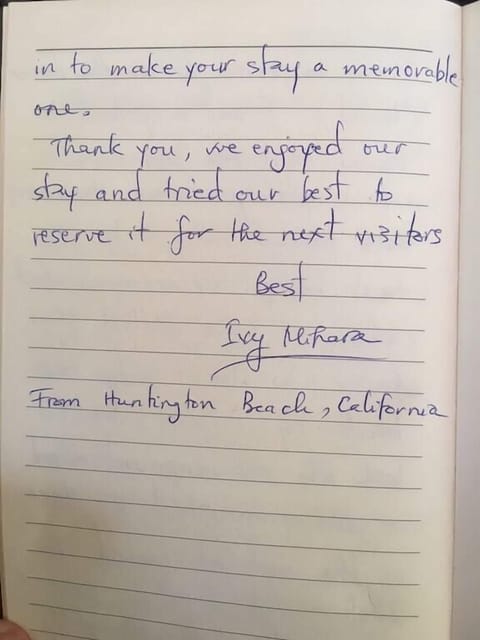 in to make your stay a memorable
one.
Thank you, we enjoyed our
stay and tried our best to
reserve it for the next visitors
Best
Ivy Mihara
From Huntington Beach, California